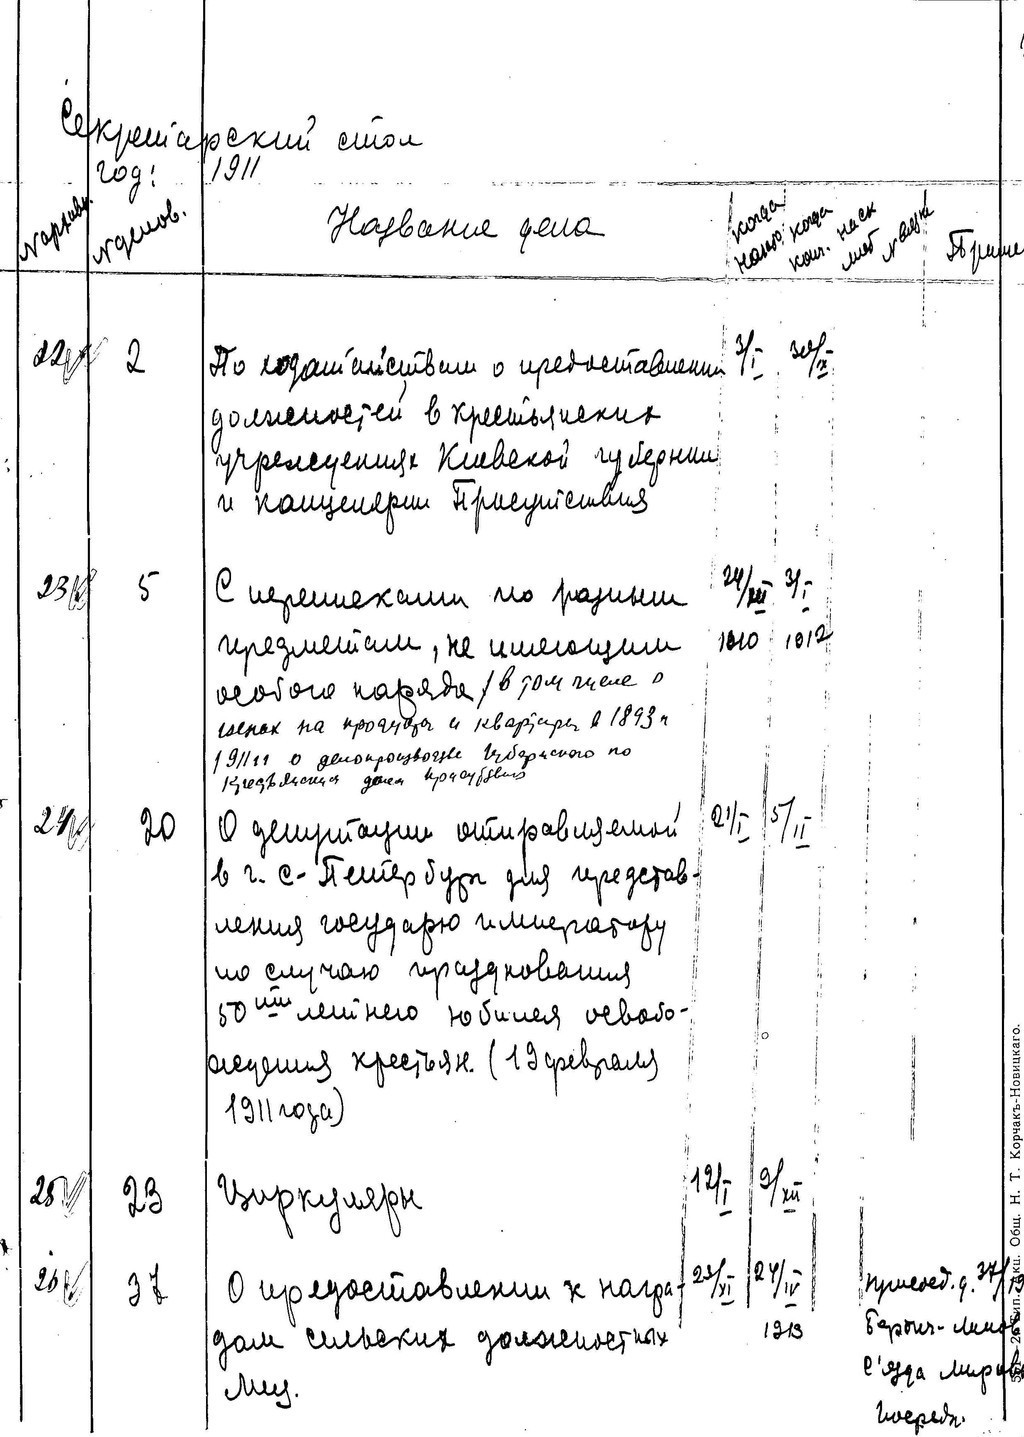 Секретарский стол
год: 1911
N архивн. N делов. Название дела когда начато когда конч. на ск лист N вязки Приме
22 2 По ходатайствам о предоставлении 3/I 30/X
должностей в крестьянских
учреждениях Киевской губернии
и канцелярии Присутствия
23 5 С переписками по разным 24/XII 3/I
предметам, не имеющим 1910 1912
особого наряда /в том числе о
ценах на продукты и квартиры в 1893 и
1911 гг о делопроизводстве Губернского по
Крестьянским делам присутствия
24 20 О депутации отправляемой 21/I 5/II
в г. С-Петербург для представ-
ления государю императору
по случаю празднования
50ти летнего юбилея освобо-
ждения крестьян. (19 февраля
1911 года)
25 23 Циркуляры 12/I 9/XII
26 37 О предоставлении к награ- 23/XI 24/IV присоед. д. 37/19
дам сельских должностных 1913
лиц.
С'езда миров
посредн.
Тип. Акц. Общ. Н. Т. Корчакъ-Новицкаго.